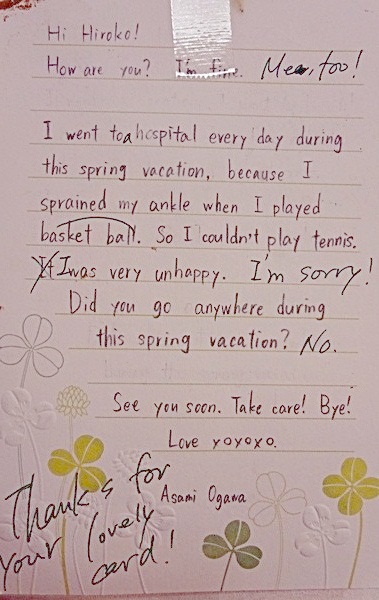 Hi Hiroko!
How are you? I'm fine. Me, too!
I went to a hospital every day during
this spring vacation, because I
sprained my ankle when I played
basket ball. So I couldn't play tennis.
I was very unhappy. I'm sorry!
Did you go anywhere during
this spring vacation? No.
See you soon. Take care! Bye!
Love yoyoxo.
Asami Ogawa
Thanks for
your lovely
card!